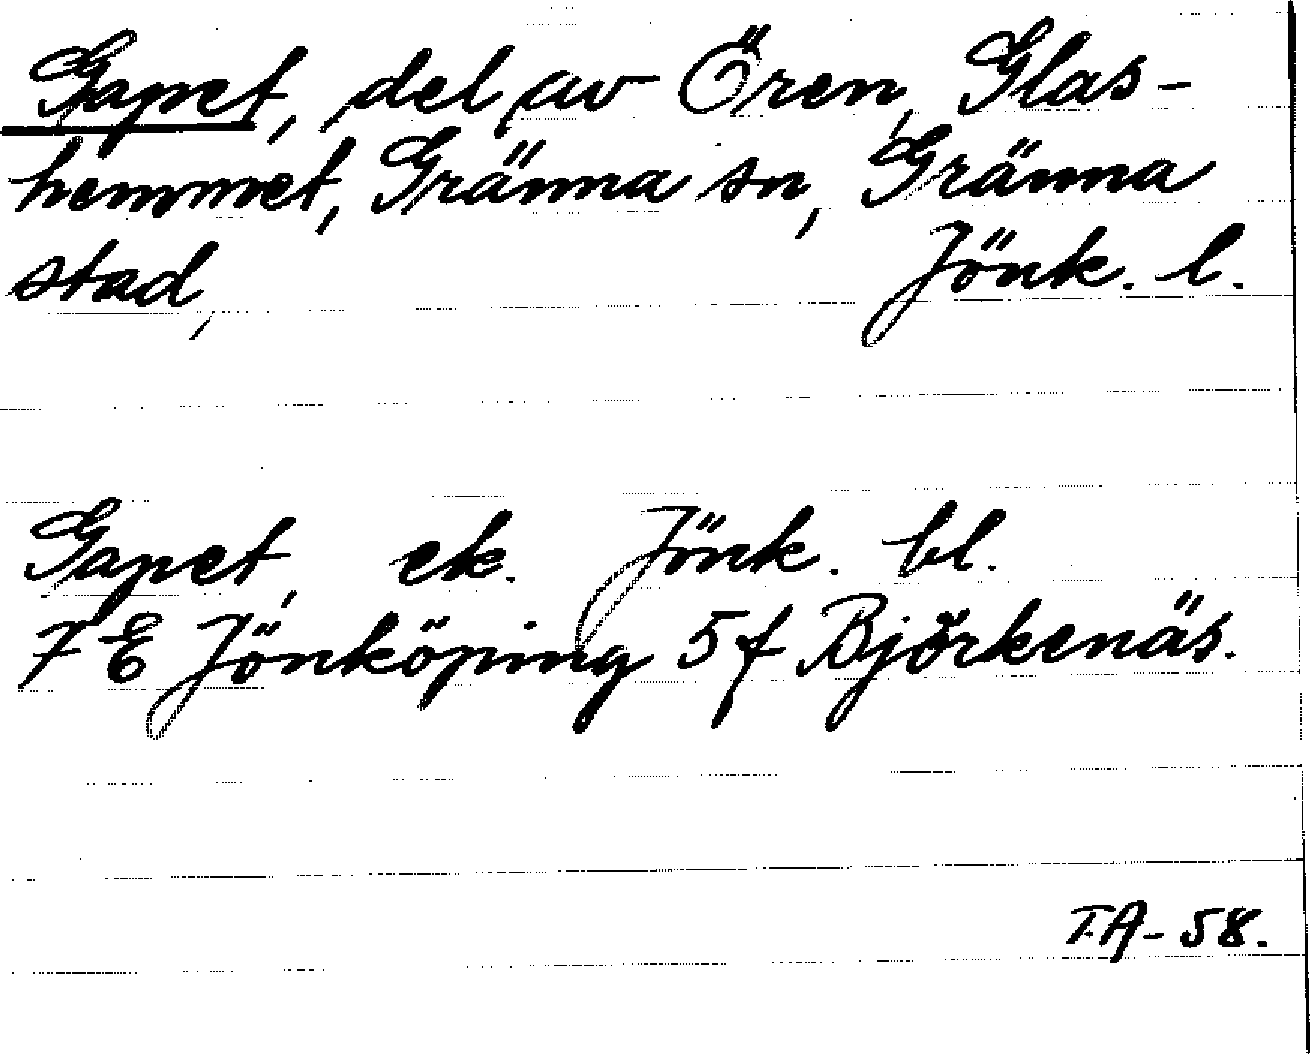 Gapet, del av Ören, Glas-
hemmet, Gränna sn, Gränna
stad, Jönk. l.
Gapet, ek. Jönk. bl.
7 E Jönköping 5f Björkenäs.
TA-58.